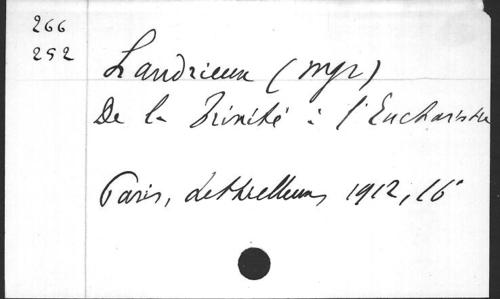 266
252
Landrieux (Mgr)
De la Trinité à l'Eucharistie
Paris, Lethielleux, 1912, 16°